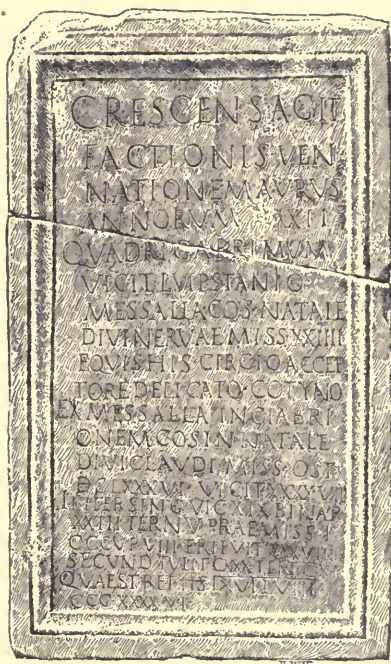 CRESCENS AGIT
FACTIONIS VEN
NATIONE MAVRVS
ANNORVM XXII
QVADRIGA PRIMVM
VICIT L VIPSTANIO
MESSALLA COS NATALE
DIVI NERVAE MISS XXIIII
EQVIS HIS CIRCIO ACCEP
TORE DELICATO COTYNO
EX MESSALLA IN GLABRI
ONEM COS IN NATALE
DIVI CLAVDI MISS OST
DCLXXXVI VICIT XXXXVII
INTER SING VIC XIX BINAR
XXIII TERN V PRAEMISS
OCCVP VIII ERIPVIT XXXVIII
SECVND TVLIT CXXX TERT
QVAEST RET HS
CCCXXXXVI